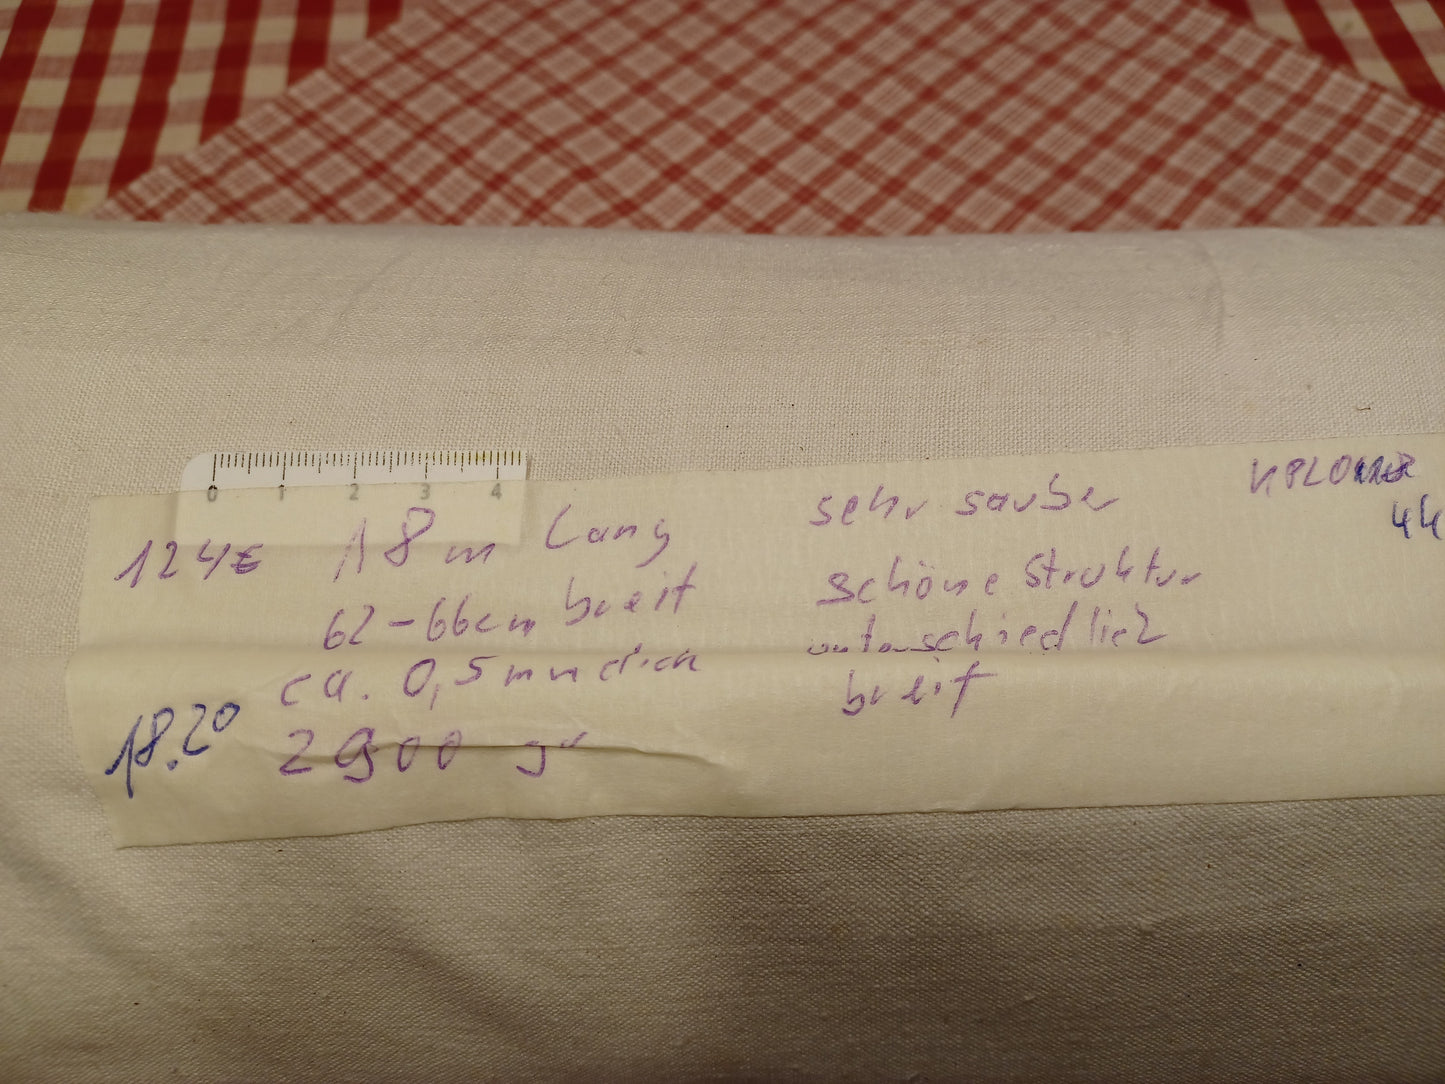 0 1 2 3 4
124€ 18 m lang
62-66cm breit
ca. 0,5 mm dick
18.20 2900 gr
sehr sauber
schöne Struktur
unterschiedlich
breit
44